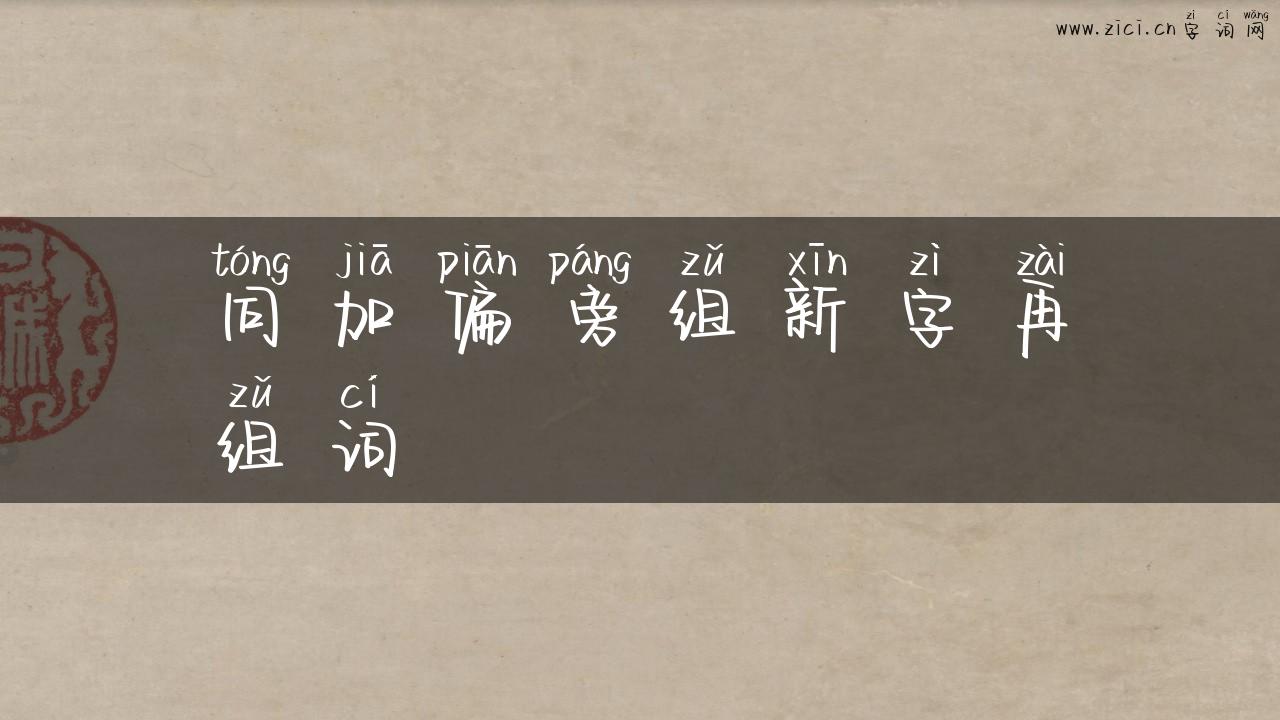 www.zici.cn字词网
zì cí wǎng
tóng jiā piān páng zǔ xīn zì zài
同加偏旁组新字再
zǔ cí
组词